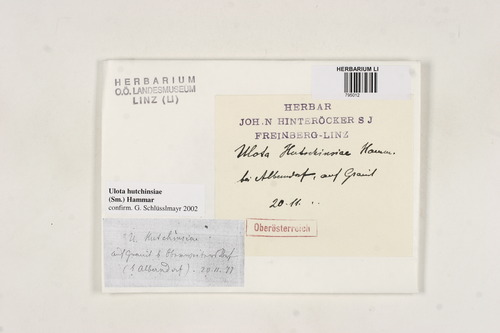 HERBARIUM LI
HERBARIUM
O.Ö. LANDESMUSEUM
LINZ (LI)
HERBAR
JOH.N HINTERÖCKER S J
FREINBERG-LINZ
Ulota Hutschinsiae Hamm.
bei Alberndorf, auf Granit
20. 11. ..
Oberösterreich
Ulota hutchinsiae
(Sm.) Hammar
confirm. G. Schlüsslmayr 2002
U. Hutchinsiae
auf Granit b.
(b Alberndorf). 20. 11. 77